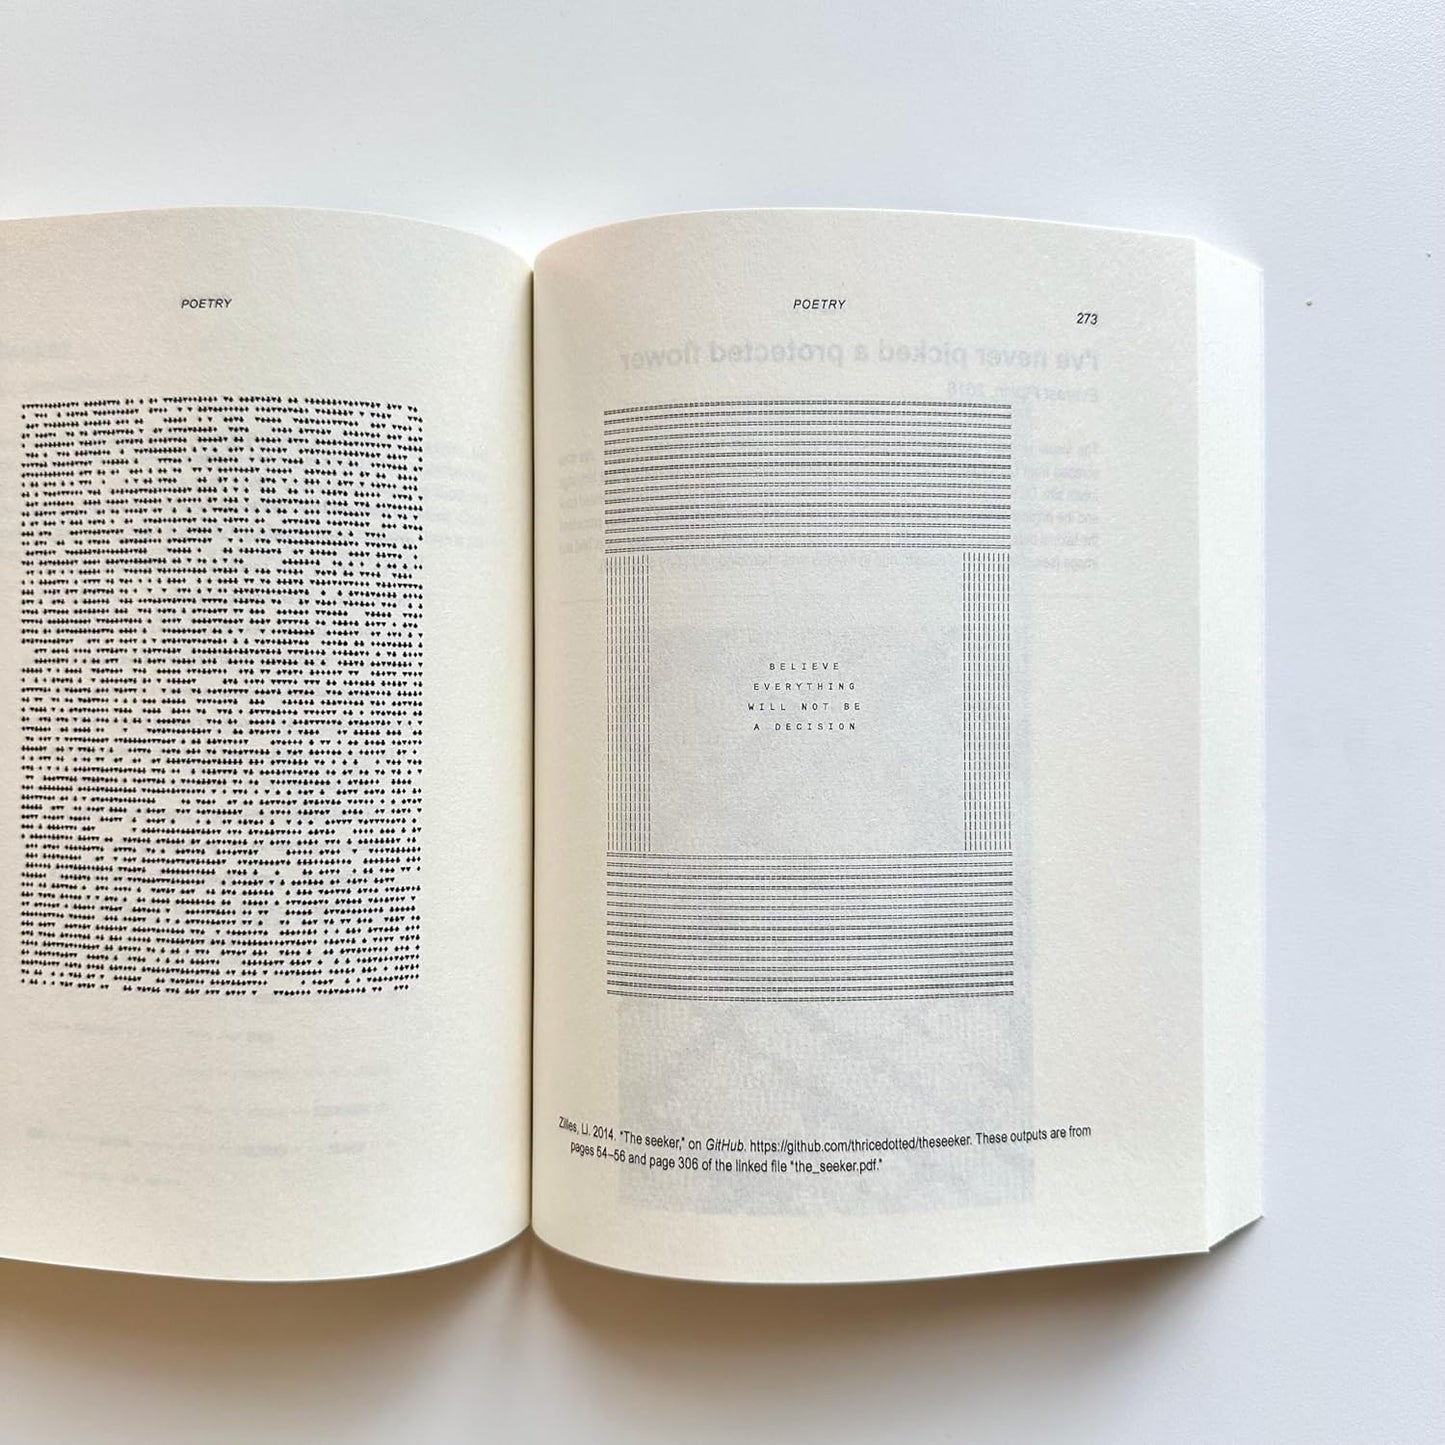 POETRY
POETRY
273
I've never picked a protected flower
BELIEVE
EVERYTHING
WILL NOT BE
A DECISION
Zilles, Li. 2014. "The seeker," on GitHub. https://github.com/thricedotted/theseeker. These outputs are from
pages 54–56 and page 306 of the linked file "the_seeker.pdf."